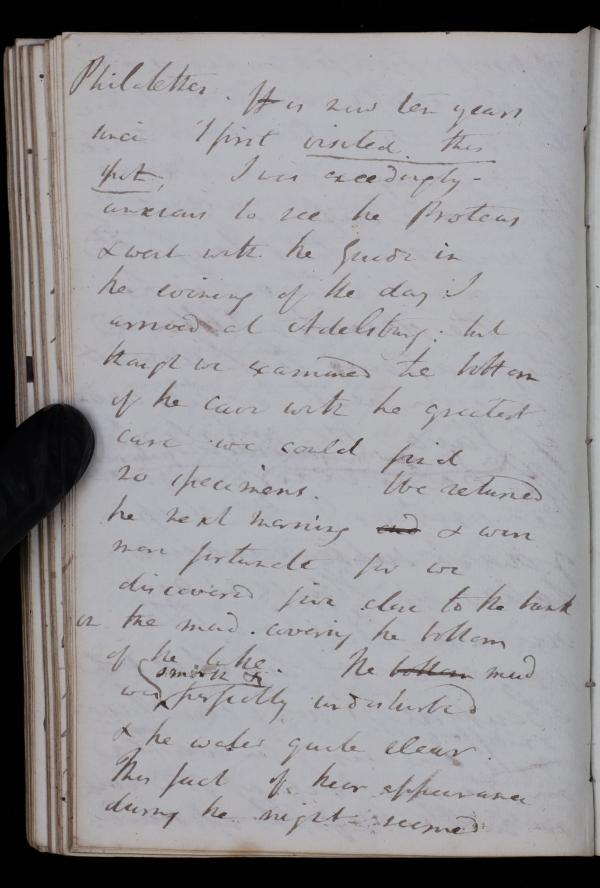 Philalethes. It is now ten years
since I first visited this
spot, I was exceedingly
anxious to see the Proteus
& went with the Guide in
the evening of the day I
arrived at Adelsburg; but
though we examined the bottom
of the cave with the greatest
care we could find
no specimens. We returned
the next morning and & were
more fortunate for we
discovered five close to the bank
on the mud covering the bottom
of the lake. The bottom mud
smooth &
was perfectly undisturbed
& the water quite clear.
This fact of their appearance
during the night seemed